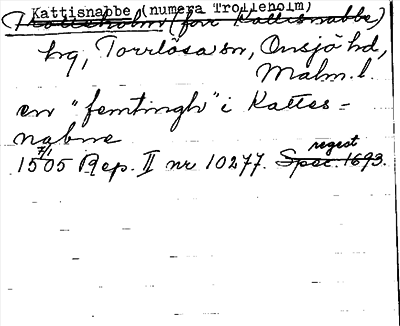 Kattisnabbe (numera Trolleholm)
Trolleholm (förr Kattisnabbe)
hrg, Torrlösa sn, Onsjö hd,
Malm. l.
en "femtingh" i Kattes=
nabne
7/1 regest
1505 Rep. II nr 10277. Spec. 1693.